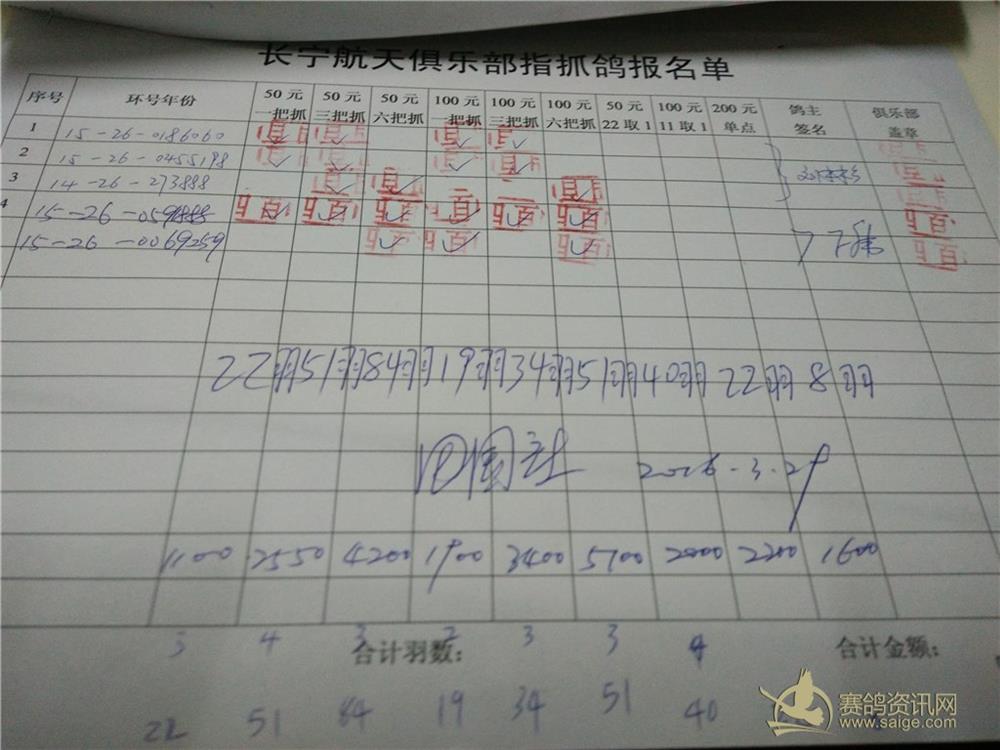 长宁航天俱乐部指抓鸽报名单
序号 环号年份 50元一把抓 50元三把抓 50元六把抓 100元一把抓 100元三把抓 100元六把抓 50元22取1 100元11取1 200元单点 鸽主签名 俱乐部盖章
1 15-26-0186060
2 15-26-0455198
3 14-26-273888
4 15-26-059888
15-26-0069259
22羽 51羽 84羽 19羽 34羽 51羽 40羽 22羽 8羽
2016.3.29
1100 2550 4200 1900 3400 5100 2000 2200 1600
3 4 3 2 3 3 4
合计羽数: 合计金额:
22 51 84 19 34 51 40
赛鸽资讯网
www.saige.com